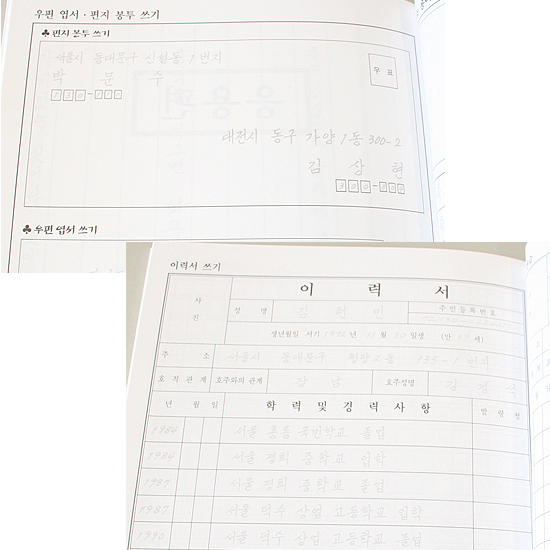 우편 엽서 · 편지 봉투 쓰기
♣ 편지 봉투 쓰기
서울시 동대문구 신설동 1번지
박 문 주
130-110
우표
응용편
대전시 동구 가양1동 300-2
김 상 현
300-200
♣ 우편 엽서 쓰기
이력서 쓰기
이 력 서
사진
성 명
김 현 민
주민등록번호
생년월일 서기 1972년 11월 20일생 (만 세)
주 소
서울시 동대문구 청량2동 135-1번지
호적관계
호주와의 관계
장 남
호주성명
김
년 월 일
학 력 및 경 력 사 항
발 령 청
1984 서울 홍릉 국민학교 졸업
1984 서울 경희 중학교 입학
1987 서울 경희 중학교 졸업
1987 서울 덕수 상업 고등학교 입학
1990 서울 덕수 상업 고등학교 졸업